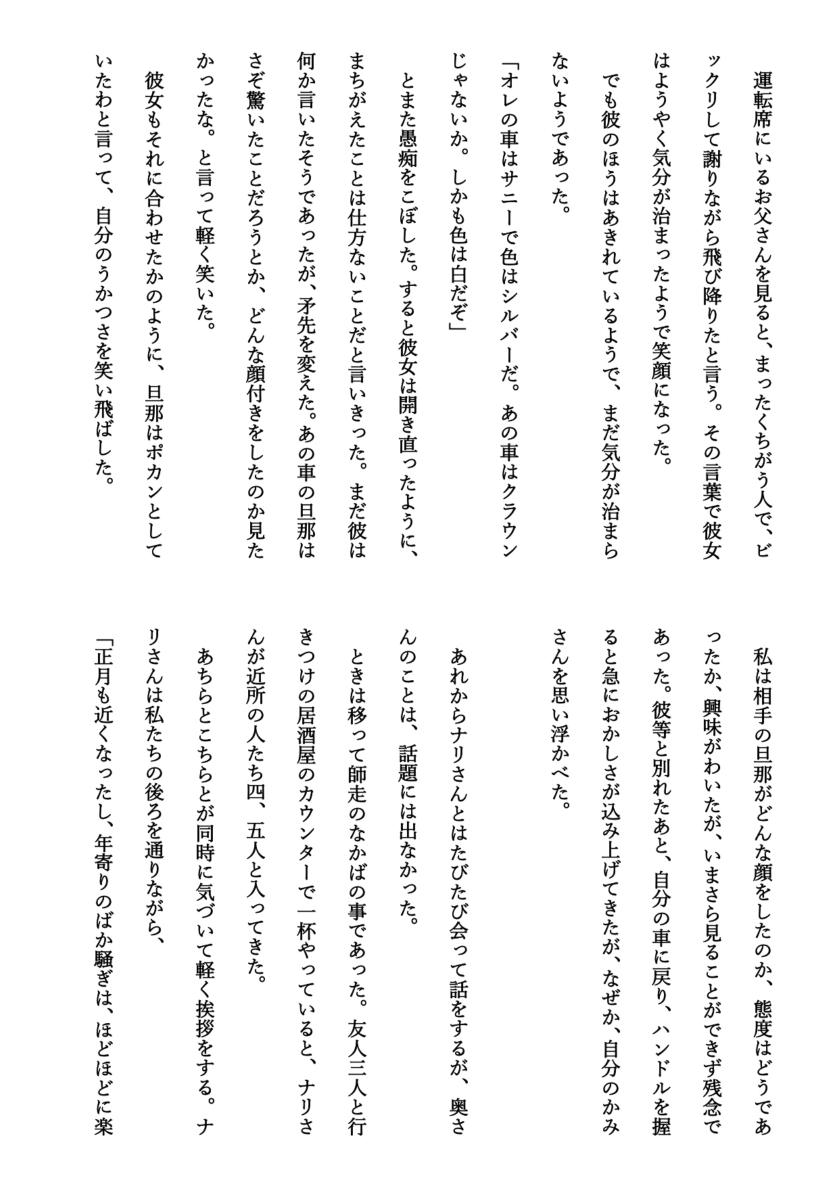 運転席にいるお父さんを見ると、まったくちがう人で、ビ
ックリして謝りながら飛び降りたと言う。その言葉で彼女
はようやく気分が治まったようで笑顔になった。
　でも彼のほうはあきれているようで、まだ気分が治まら
ないようであった。
「オレの車はサニーで色はシルバーだ。あの車はクラウン
じゃないか。しかも色は白だぞ」
　とまた愚痴をこぼした。すると彼女は開き直ったように、
まちがえたことは仕方ないことだと言いきった。まだ彼は
何か言いたそうであったが、矛先を変えた。あの車の旦那は
さぞ驚いたことだろうとか、どんな顔付きをしたのか見た
かったな。と言って軽く笑いた。
　彼女もそれに合わせたかのように、旦那はポカンとして
いたわと言って、自分のうかつさを笑い飛ばした。
　私は相手の旦那がどんな顔をしたのか、態度はどうであ
ったか、興味がわいたが、いまさら見ることができず残念で
あった。彼等と別れたあと、自分の車に戻り、ハンドルを握
ると急におかしさが込み上げてきたが、なぜか、自分のかみ
さんを思い浮かべた。
　あれからナリさんとはたびたび会って話をするが、奥さ
んのことは、話題には出なかった。
　ときは移って師走のなかばの事であった。友人三人と行
きつけの居酒屋のカウンターで一杯やっていると、ナリさ
んが近所の人たち四、五人と入ってきた。
　あちらとこちらとが同時に気づいて軽く挨拶をする。ナ
リさんは私たちの後ろを通りながら、
「正月も近くなったし、年寄りのばか騒ぎは、ほどほどに楽